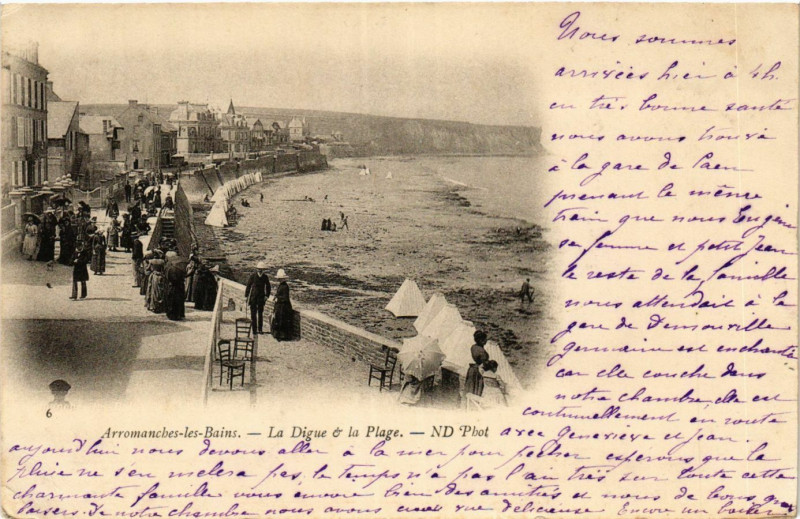 Nous sommes
arrivées hier à 4h.
en très bonne santé
nous avons trouvé
à la gare de Caen
prenant le même
train que nous Eugène
sa femme et petit Jean
le reste de la famille
nous attendait à la
gare de
germaine est enchantée
car elle couche dans
notre chambre, elle est
continuellement en route
avec Geneviève et Jean.
6
Arromanches-les-Bains. — La Digue & la Plage. — ND Phot
aujourd'hui nous devons aller à la mer pour pêcher espérons que la
pluie ne s'en mêlera pas, le temps n'a pas l'air très sur toute cette
charmante famille vous envoie bien des amitiés et nous de bons gros
baisers. De notre chambre nous avons une vue délicieuse. Encore un